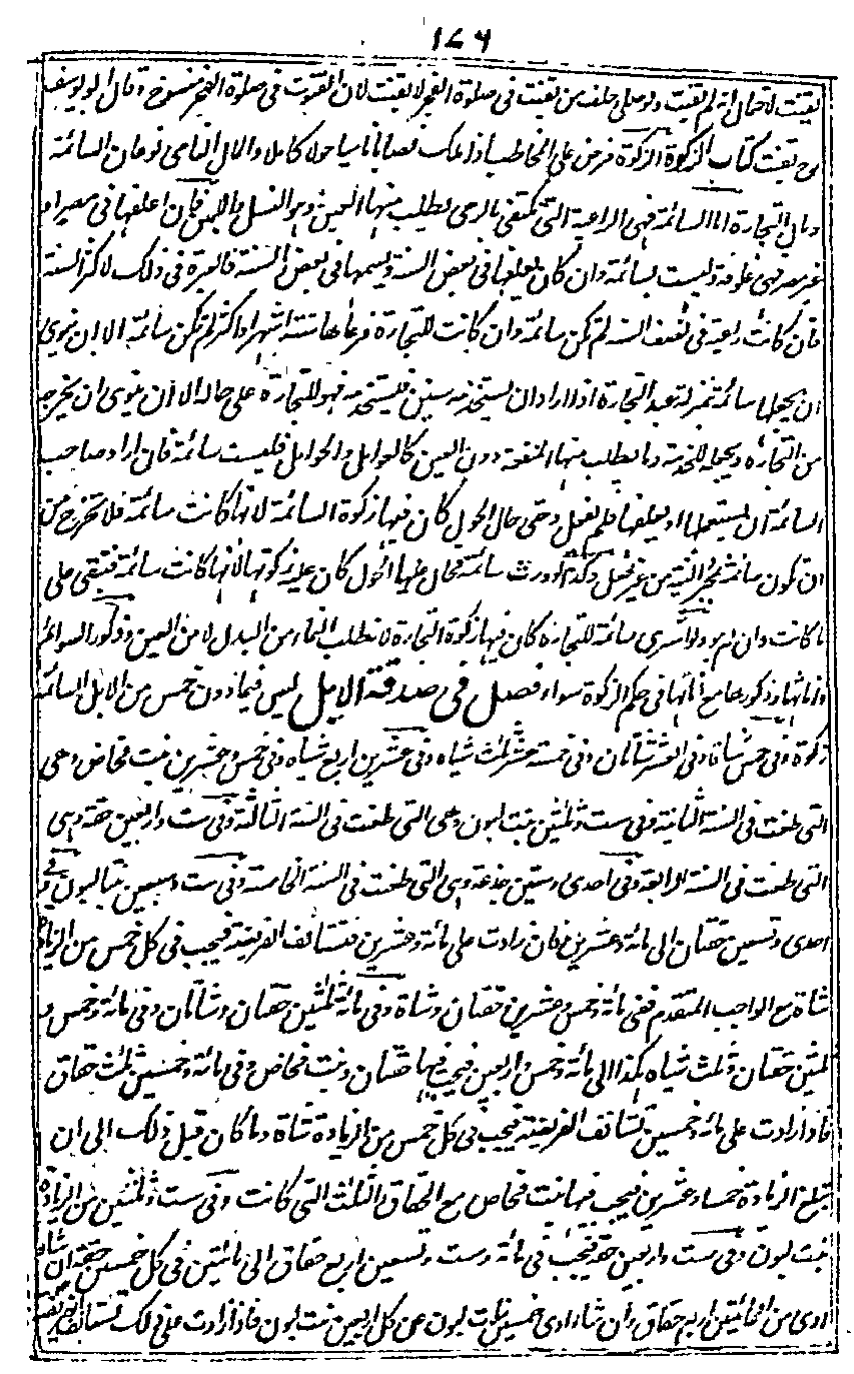 ١٤٦
يقنت لاحتمال انه لم يقنت ولو صلى خلف من يقنت فى صلوة الفجر لا يقنت لان القنوت فى صلوة الفجر منسوخ وقال ابو يوسف
رح يقنت كتاب الزكوة الزكوة فرض على المخاطب اذا ملك نصابا ناميا حولا كاملا والمال النامى نوعان السائمة
ومال التجارة اما السائمة فهى الراعية التى تكتفى بالرعى يطلب منها العين وهو النسل واللبن فان اعلفها فى مصر او
غير مصر فهى علوفة وليست بسائمة وان كان يعلفها فى بعض السنة ويسيمها فى بعض السنة فالعبرة فى ذلك لاكثر السنة
فان كانت راعية فى نصف السنة لم تكن سائمة وان كانت للتجارة فرعاها ستة اشهر او اكثر لم تكن سائمة الا ان ينوى
ان يجعلها سائمة بمنزلة عبد التجارة اذا اراد ان يستخدمه سنين فيستخدمه فهو للتجارة على حاله الا ان ينوى ان يخرجه
من التجارة ويجعله للخدمة وما يطلب منها المنفعة دون العين كالعوامل والحوامل فليست سائمة فان اراد صاحب
السائمة ان يستعملها او يعلفها فلم يفعل وحتى حال الحول كان فيها زكوة السائمة لانها كانت سائمة فلا تخرج من
ان تكون سائمة بمجرد النية من غير فعل وكذا لو ورث سائمة فحال عليها الحول كان عليه زكوتها لانها كانت سائمة فتبقى على
ما كانت وان لم ينو ولو اشترى سائمة للتجارة كان فيها زكوة التجارة لانه طلب النماء من البدل لا من العين وذكور السوائم
واناثها وذكورها مع اناثها فى حكم الزكوة سواء فصل فى صدقة الابل ليس فيما دون خمس من الابل السائمة
زكوة وفى خمس شاة وفى العشر شاتان وفى خمسة عشر ثلث شياه وفى عشرين اربع شياه وفى خمس وعشرين بنت مخاض وهى
التى طعنت فى السنة الثانية وفى ست وثلثين بنت لبون وهى التى طعنت فى السنة الثالثة وفى ست واربعين حقة وهى
التى طعنت فى السنة الرابعة وفى احدى وستين جذعة وهى التى طعنت فى السنة الخامسة وفى ست وسبعين بنتا لبون وفى
احدى وتسعين حقتان الى مائة وعشرين فان زادت على مائة وعشرين فتستانف الفريضة فيجب فى كل خمس من الزيادة
شاة مع الواجب المتقدم ففى مائة وخمس وعشرين حقتان وشاة وفى مائة وثلثين حقتان وشاتان وفى مائة وخمس و
ثلثين حقتان وثلث شياه هكذا الى مائة وخمس واربعين فيجب فيها حقتان وبنت مخاض وفى مائة وخمسين ثلث حقاق
فاذا زادت على مائة وخمسين تستانف الفريضة فيجب فى كل خمس من الزيادة شاة وما كان قبل ذلك الى ان
تبلغ الزيادة خمسا وعشرين فيجب فيها بنت مخاض مع الحقاق الثلث التى كانت وفى ست وثلثين من الزيادة
بنت لبون وفى ست واربعين حقة فيجب فى مائة وست وتسعين اربع حقاق الى مائتين فى كل خمسين حقة ان شاء
ادى من المائتين اربع حقاق وان شاء ادى خمس بنات لبون عن كل اربعين بنت لبون فاذا زادت على ذلك تستانف الفريضة